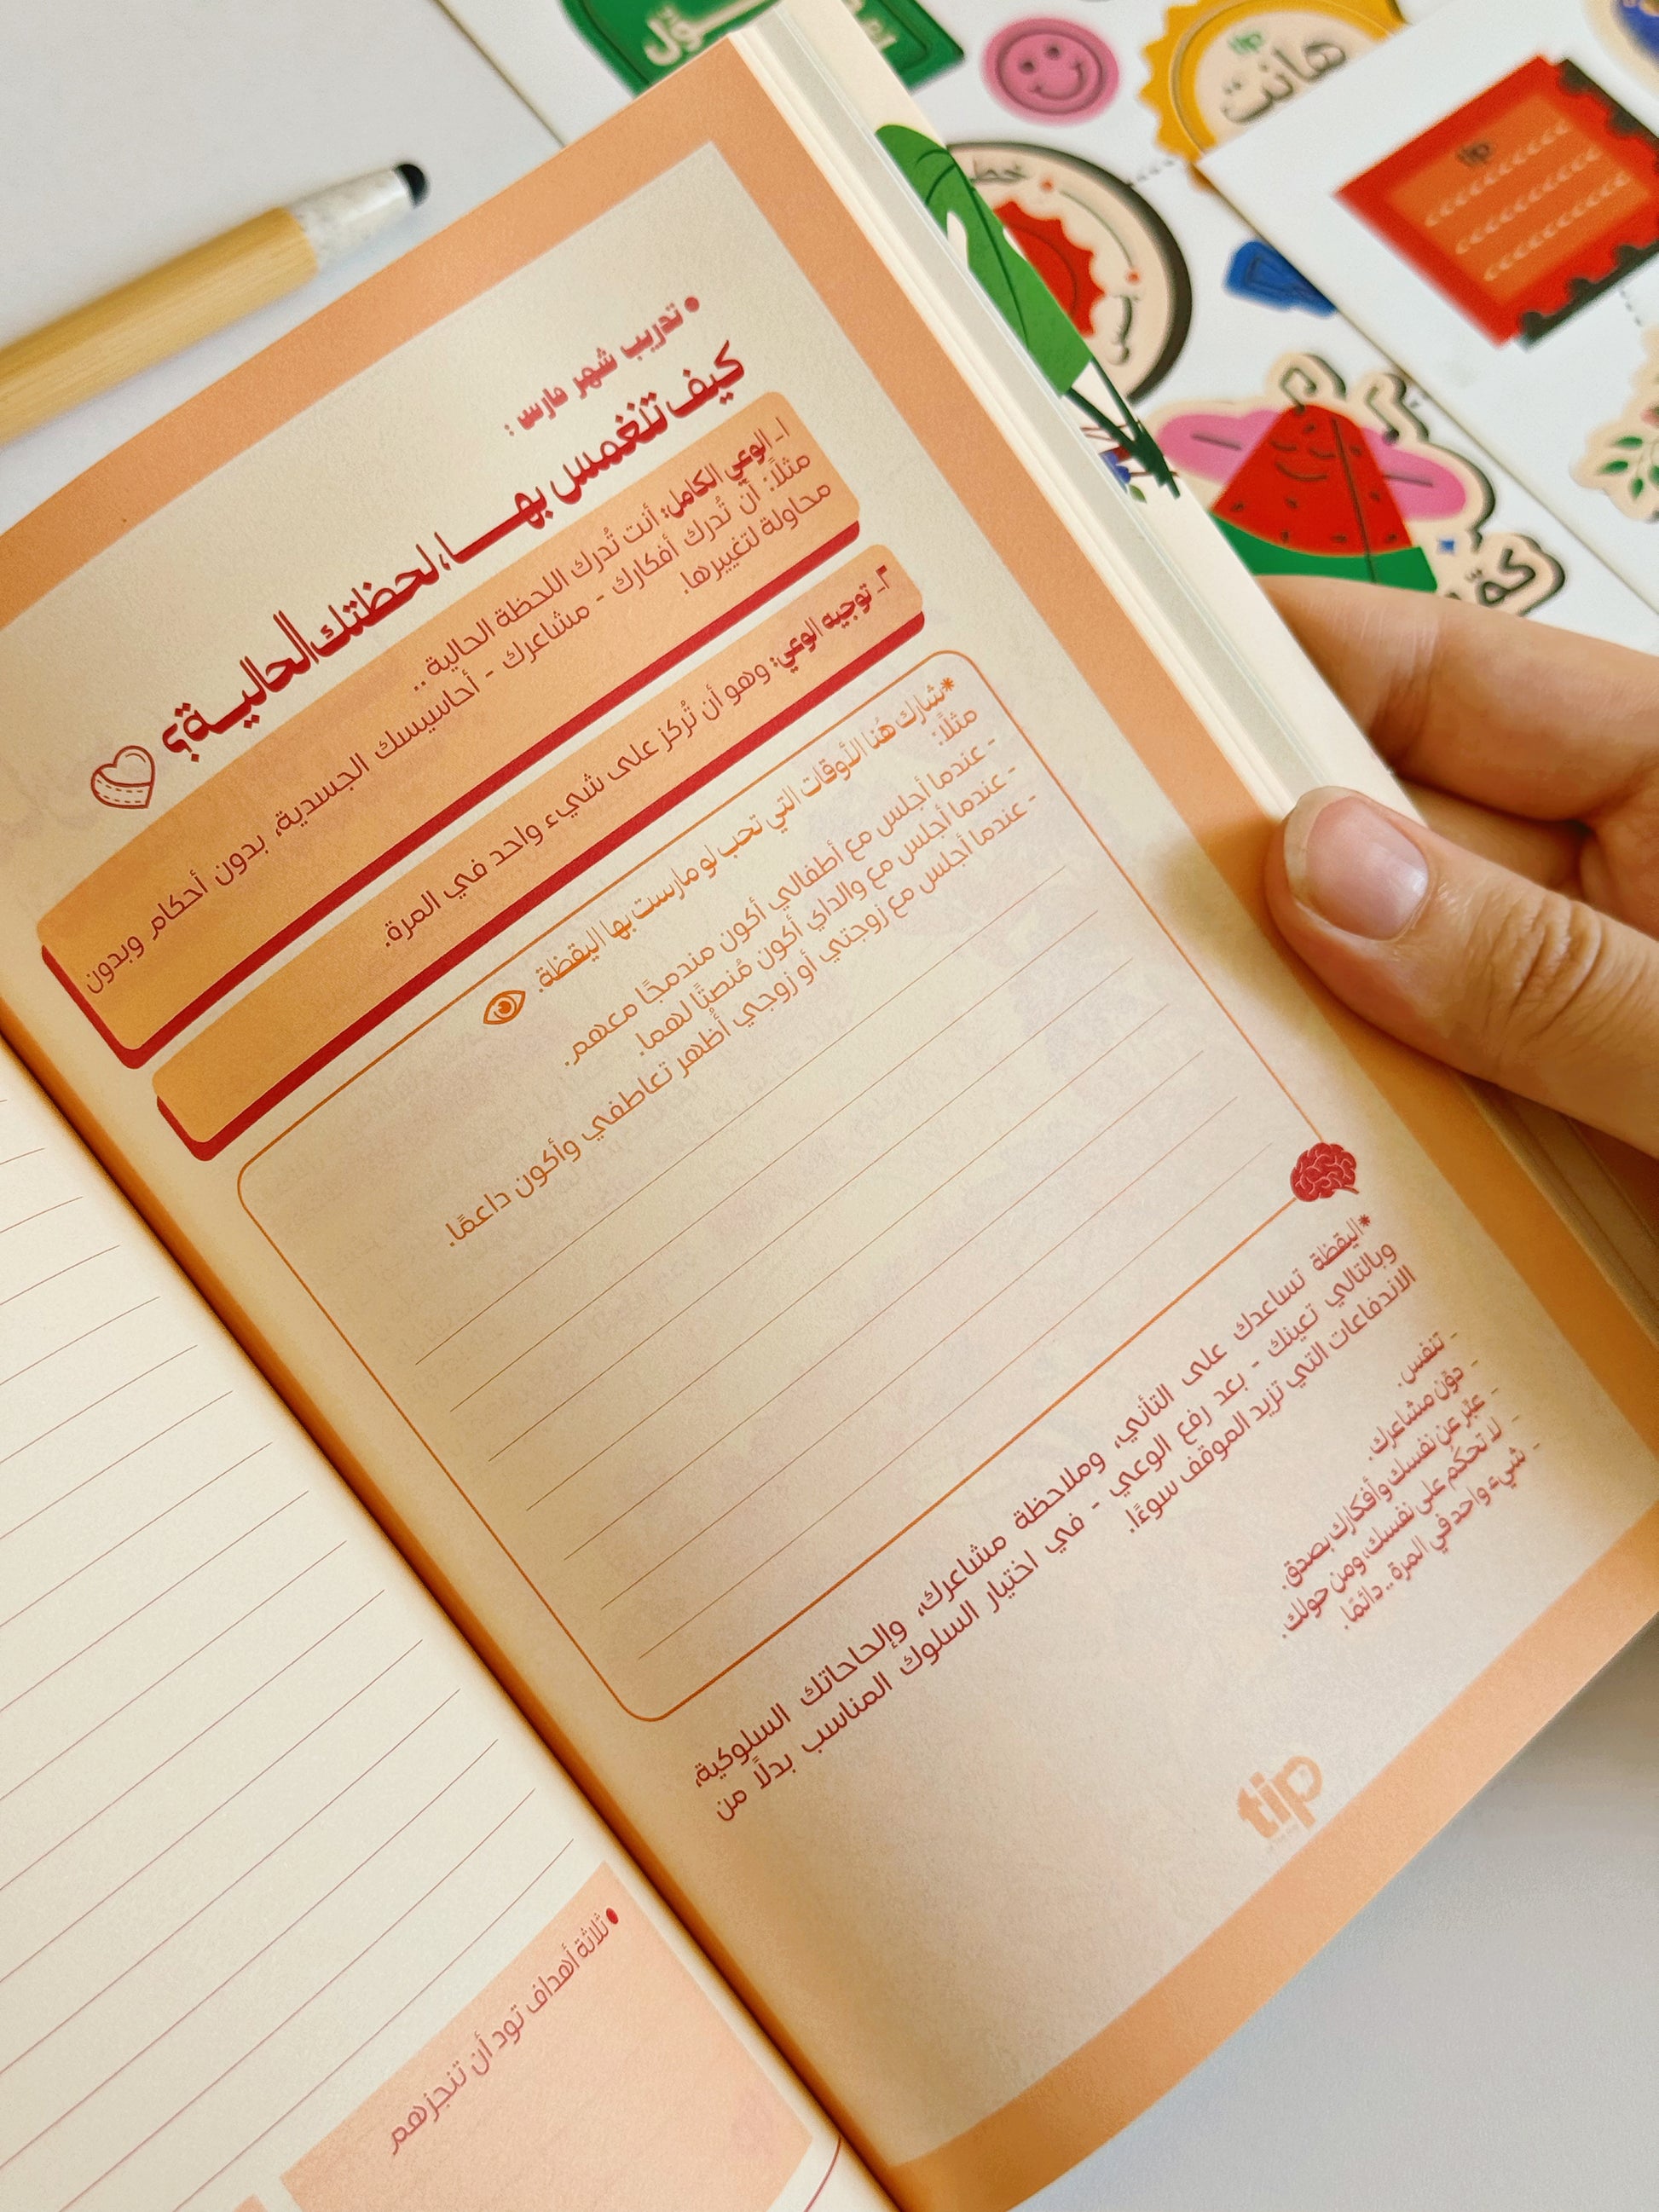 • تدريب شهر مارس :
كيف تنغمس بهـــا، لحظتك الحاليـة؟
١- الوعي الكامل: أنت تُدرك اللحظة الحالية ..
مثلًا: أن تُدرك أفكارك - مشاعرك - أحاسيسك الجسدية، بدون أحكام وبدون
محاولة لتغييرها.
٢- توجيه الوعي: وهو أن تُركز على شيء واحد في المرة.
*شارك هُنا الأوقات التي تحب لو مارست بها اليقظة.
مثلًا:
- عندما أجلس مع أطفالي أكون مندمجًا معهم.
- عندما أجلس مع والداي أكون مُنصتًا لهما.
- عندما أجلس مع زوجتي أو زوجي أُظهر تعاطفي وأكون داعمًا.
*اليقظة تساعدك على التأني، وملاحظة مشاعرك، وإلحاحاتك السلوكية،
وبالتالي تعينك - بعد رفع الوعي - في اختيار السلوك المناسب بدلًا من
الاندفاعات التي تزيد الموقف سوءًا.
- تنفس.
- دوّن مشاعرك.
- عبّر عن نفسك وأفكارك بصدق.
- لا تحكُم على نفسك، ومن حولك.
- شيء واحد في المرة .. دائمًا.
tip
• ثلاثة أهداف تود أن تنجزهم
tip
هانت
tip